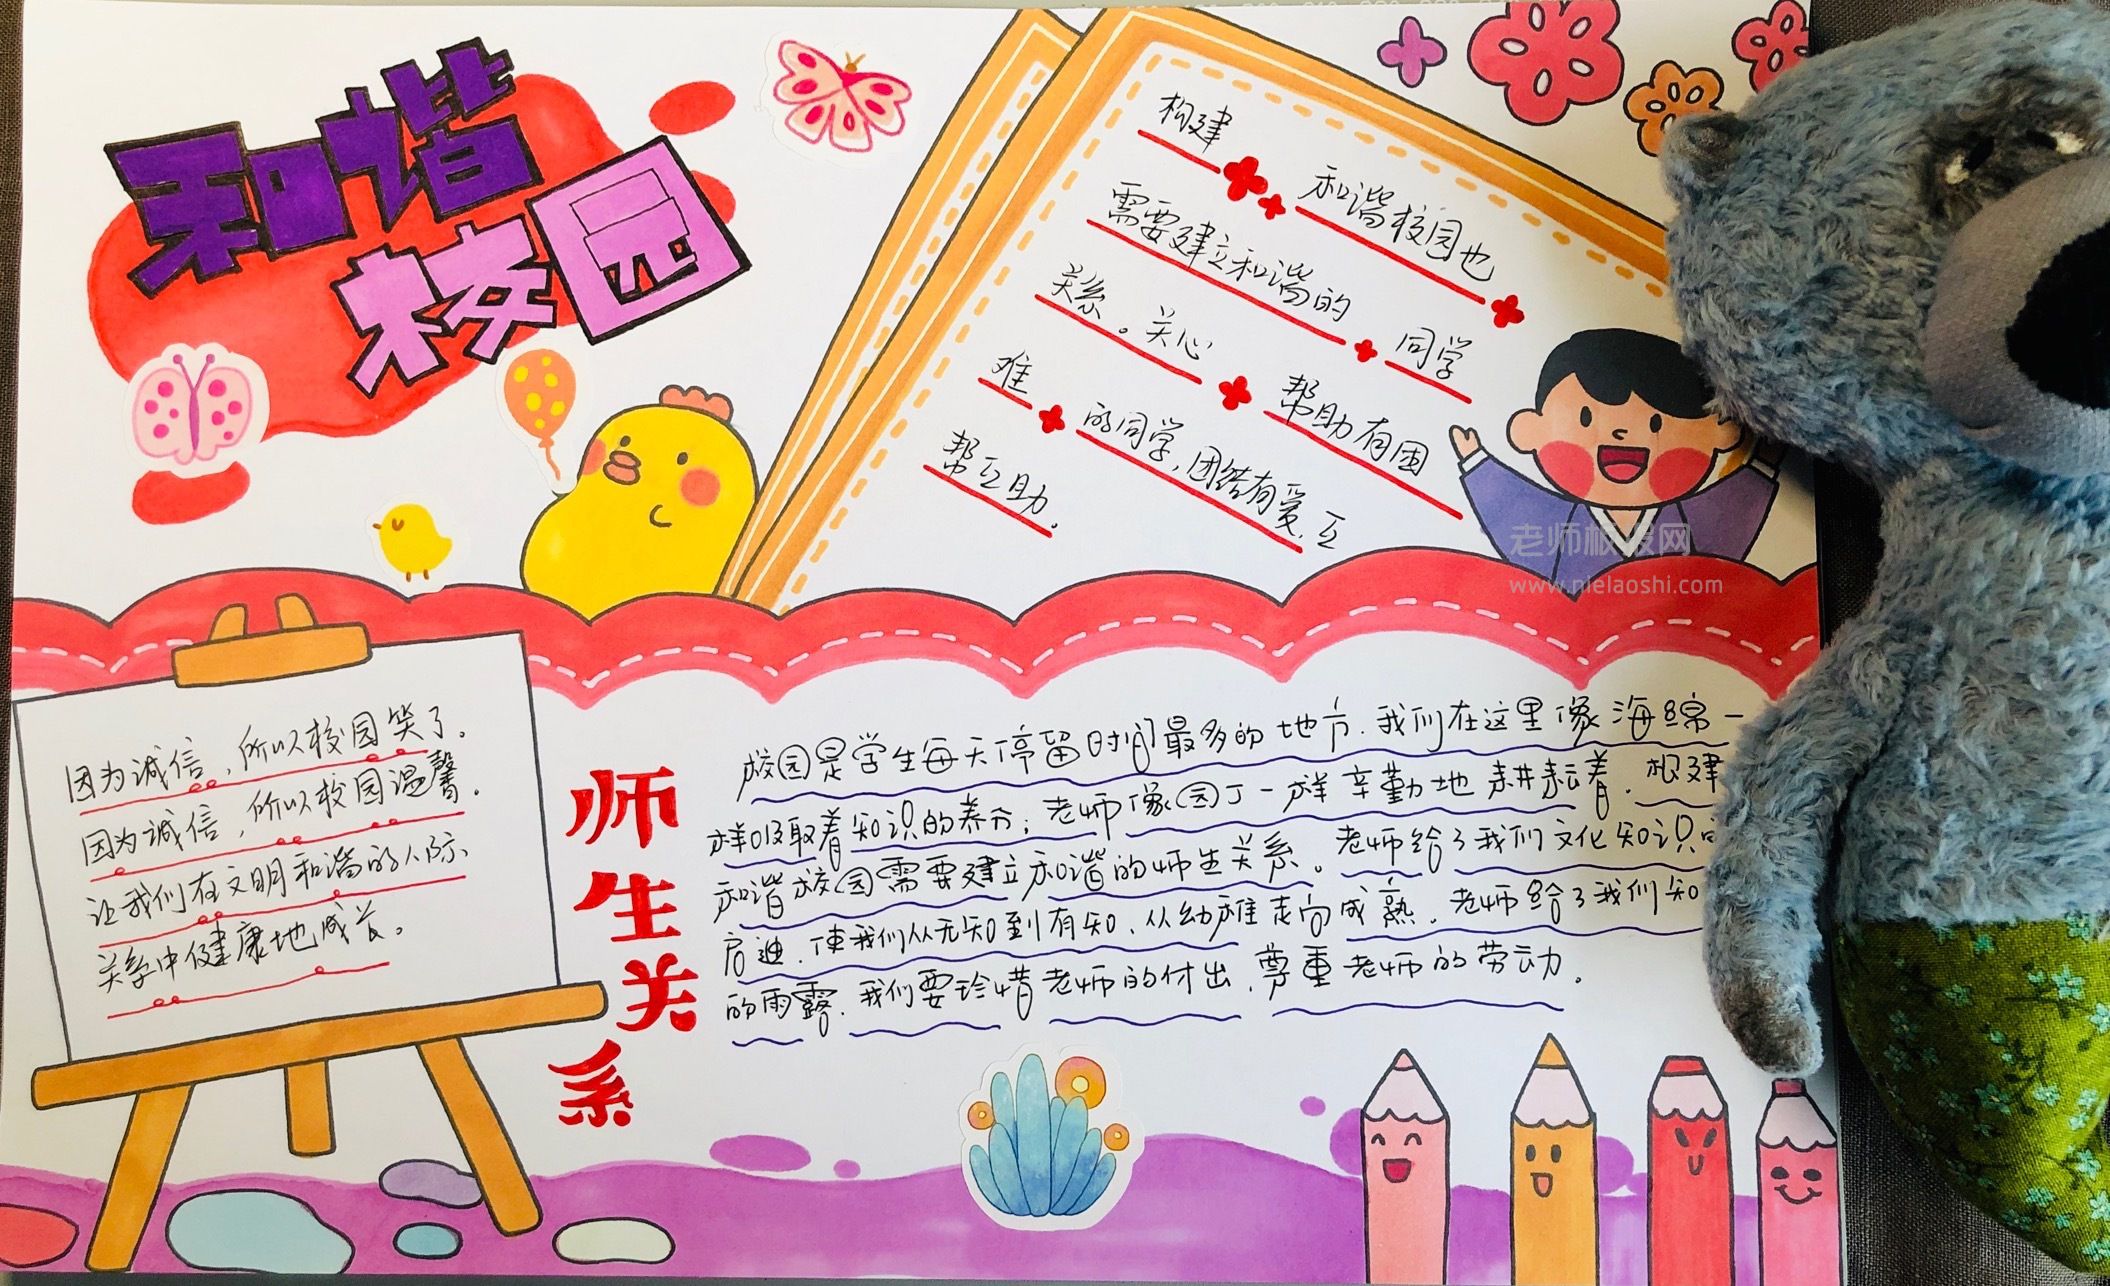 和谐
校园
构建 和谐校园也
需要建立和谐的 同学
关系。关心 帮助有困
难 的同学,团结有爱,互
帮互助。
老师板报网
www.nielaoshi.com
因为诚信,所以校园笑了。
因为诚信,所以校园温馨。
让我们在文明和谐的人际
关系中健康地成长。
师生关系
校园是学生每天停留时间最多的地方,我们在这里像海绵一
样吸取着知识的养分;老师像园丁一样辛勤地耕耘着.构建
和谐校园需要建立和谐的师生关系。老师给了我们文化知识的
启迪,使我们从无知到有知,从幼稚走向成熟,老师给了我们知
的雨露,我们要珍惜老师的付出,尊重老师的劳动。